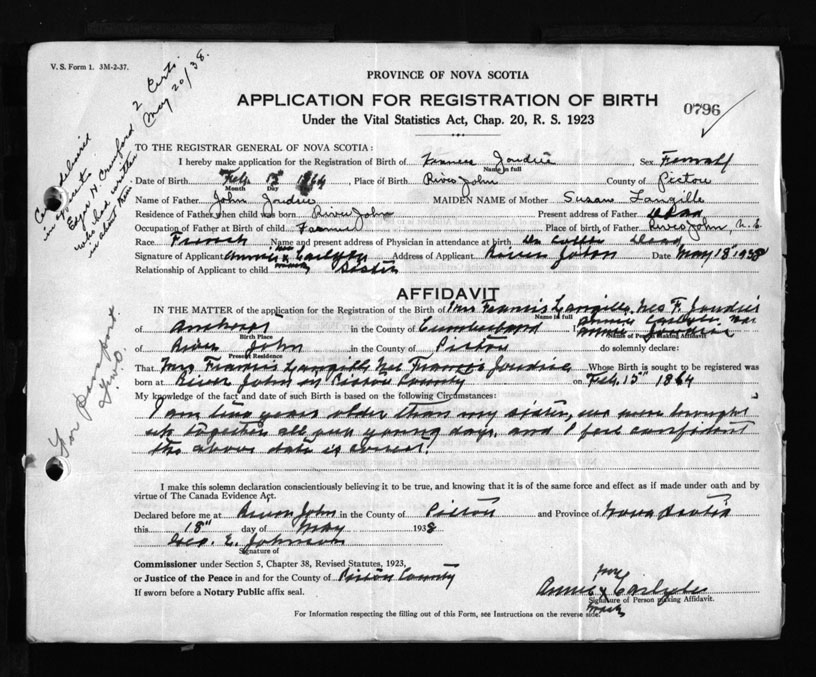 V. S. Form 1. 3M-2-37.
2 Certs.
May 20/38.
Edgar H. Crawford
who had written
PROVINCE OF NOVA SCOTIA
APPLICATION FOR REGISTRATION OF BIRTH
0796
Under the Vital Statistics Act, Chap. 20, R. S. 1923
TO THE REGISTRAR GENERAL OF NOVA SCOTIA:
I hereby make application for the Registration of Birth of Frances Joudrie Sex Female
Name in full
Date of Birth Feb. 15 1864, Place of Birth River John County of Pictou
Month Day
Name of Father John Joudrie MAIDEN NAME of Mother Susan Langille
Residence of Father when child was born River John Present address of Father Dead
Occupation of Father at Birth of child Farmer Place of birth of Father River John, N. S.
Race French Name and present address of Physician in attendance at birth Dr. Dead
Signature of Applicant Annie x Carlyle Address of Applicant River John Date May 18" 1938
mark
Relationship of Applicant to child Sister
AFFIDAVIT
IN THE MATTER of the application for the Registration of the Birth of Mrs Francis Langille Nee F. Joudrie
Name in full
of Amherst in the County of Cumberland I Annie Carlyle Nee
Birth Place
Annie Joudrie
Name of Person Making Affidavit
of River John in the County of Pictou do solemnly declare:
Present Residence
That Mrs Francis Langille Nee Frances Joudrie Whose Birth is sought to be registered was
born at River John in Pictou County on Feb, 15" 1864
My knowledge of the fact and date of such Birth is based on the following Circumstances:
I am two years older than my sister, we were brought
up together all our young days, and I feel confident
the above date is correct.
For Passport
I make this solemn declaration conscientiously believing it to be true, and knowing that it is of the same force and effect as if made under oath and by
virtue of The Canada Evidence Act.
Declared before me at River John in the County of Pictou and Province of Nova Scotia
this 18" day of May 1938
Geo. E. Johnson
Signature of
Commissioner under Section 5, Chapter 38, Revised Statutes, 1923,
or Justice of the Peace in and for the County of Pictou County
If sworn before a Notary Public affix seal.
her
Annie x Carlyle
Signature of Person making Affidavit.
mark
For Information respecting the filling out of this Form, see Instructions on the reverse side.